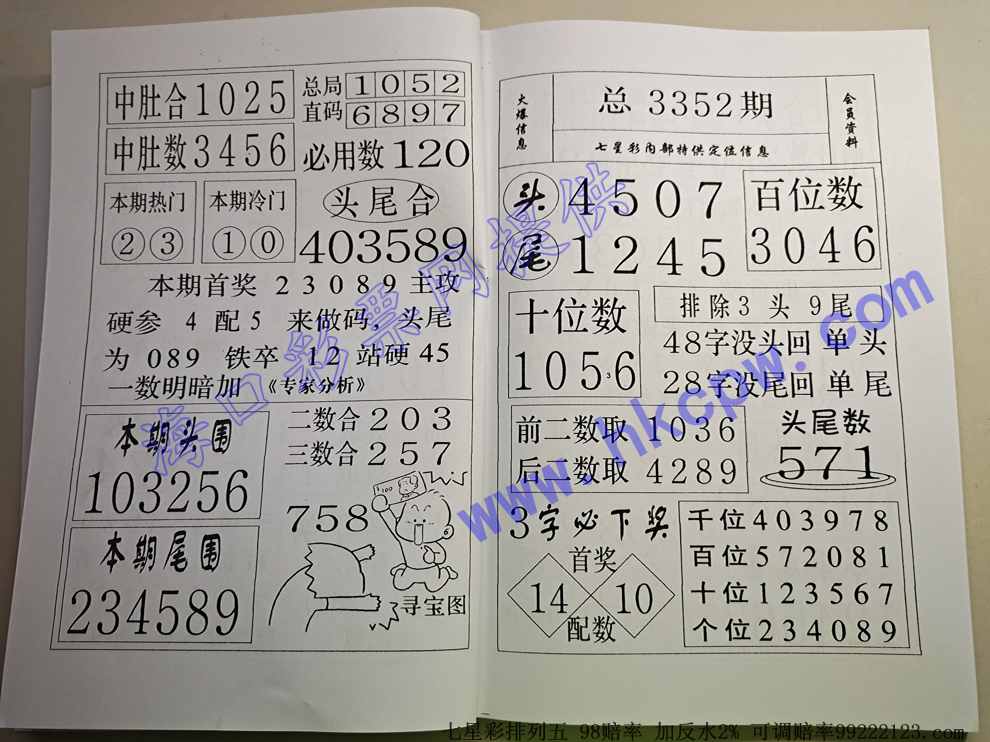 中肚合1025
中肚数3456
总局1052
直码6897
必用数120
本期热门
②③
本期冷门
①⓪
头尾合
403589
本期首奖 23089主攻
硬参 4 配5 来做码，头尾
为 089 铁卒 12站硬45
一数明暗加 《专家分析》
本期头围
103256
本期尾围
234589
二数合203
三数合257
758
100
寻宝图
火爆信息
总 3352期
七星彩内部特供定位信息
会员资料
头 4507
尾 1245
百位数
3046
十位数
1056
3
排除3 头 9尾
48字没头回 单 头
28字没尾回 单 尾
前二数取 1036
后二数取 4289
头尾数
571
3字必下奖
首奖
14 10
配数
千位403978
百位572081
十位123567
个位234089
海口彩票网提供
www.hkcpw.com
七星彩排列五 98赔率 加反水2% 可调赔率99222123.com